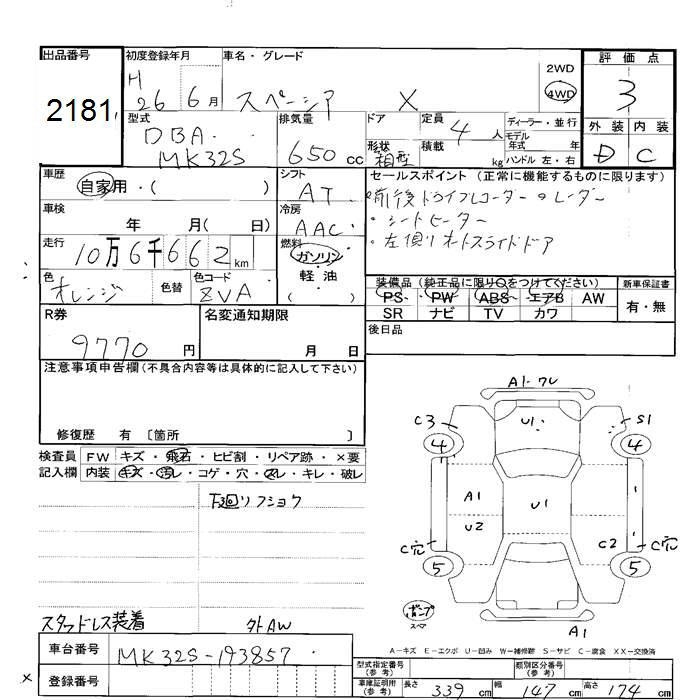 出品番号
2181
初度登録年月
H
26 6月
車名・グレード
スペーシア X
2WD
4WD
評価点
3
外装 内装
D C
型式
DBA-
MK32S
排気量
650cc
ドア
形状
箱型
定員
4人
積載
kg
ディーラー・並行
モデル
年式 年
ハンドル 左・右
車歴
自家用・( )
シフト
AT
セールスポイント (正常に機能するものに限ります)
前後ドライブレコーダー・レーダー
・シートヒーター
・左側オートスライドドア
車検
年 月( 日)
冷房
AAC
走行
10万6千662km
燃料
ガソリン
軽油
( )
色
オレンジ
色替
色コード
ZVA
装備品 (純正品に限り○をつけてください)
PS PW ABS エアB AW
SR ナビ TV カワ
新車保証書
有・無
R券
9770円
名変通知期限
月 日
後日品
注意事項申告欄 (不具合内容等は具体的に記入して下さい)
修復歴 有 〔箇所 〕
検査員 FW キズ・飛石・ヒビ割・リペア跡・×要
記入欄 内装 キズ・汚レ・コゲ・穴・スレ・キレ・破レ
下廻りフショク
A1-ワレ
C3 U1 S1
4 4
A1 U1
U2 C2
C穴 C穴
5 5
ポンプ
スペア
A1
スタッドレス装着 外AW
A-キズ E-エクボ U-凹み W-補修跡 S-サビ C-腐食 XX-交換済
車台番号
MK32S-193857
× 登録番号
型式指定番号
(参考)
類別区分番号
(参考)
車庫証明用
(参考)
長さ 339cm 幅 147cm 高さ 174cm